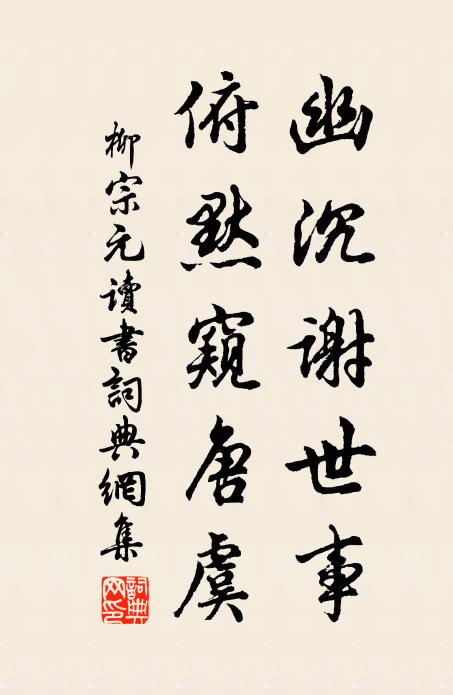 幽沉謝世事
俯默窺唐虞
柳宗元讀書詞典網集
詞典網印